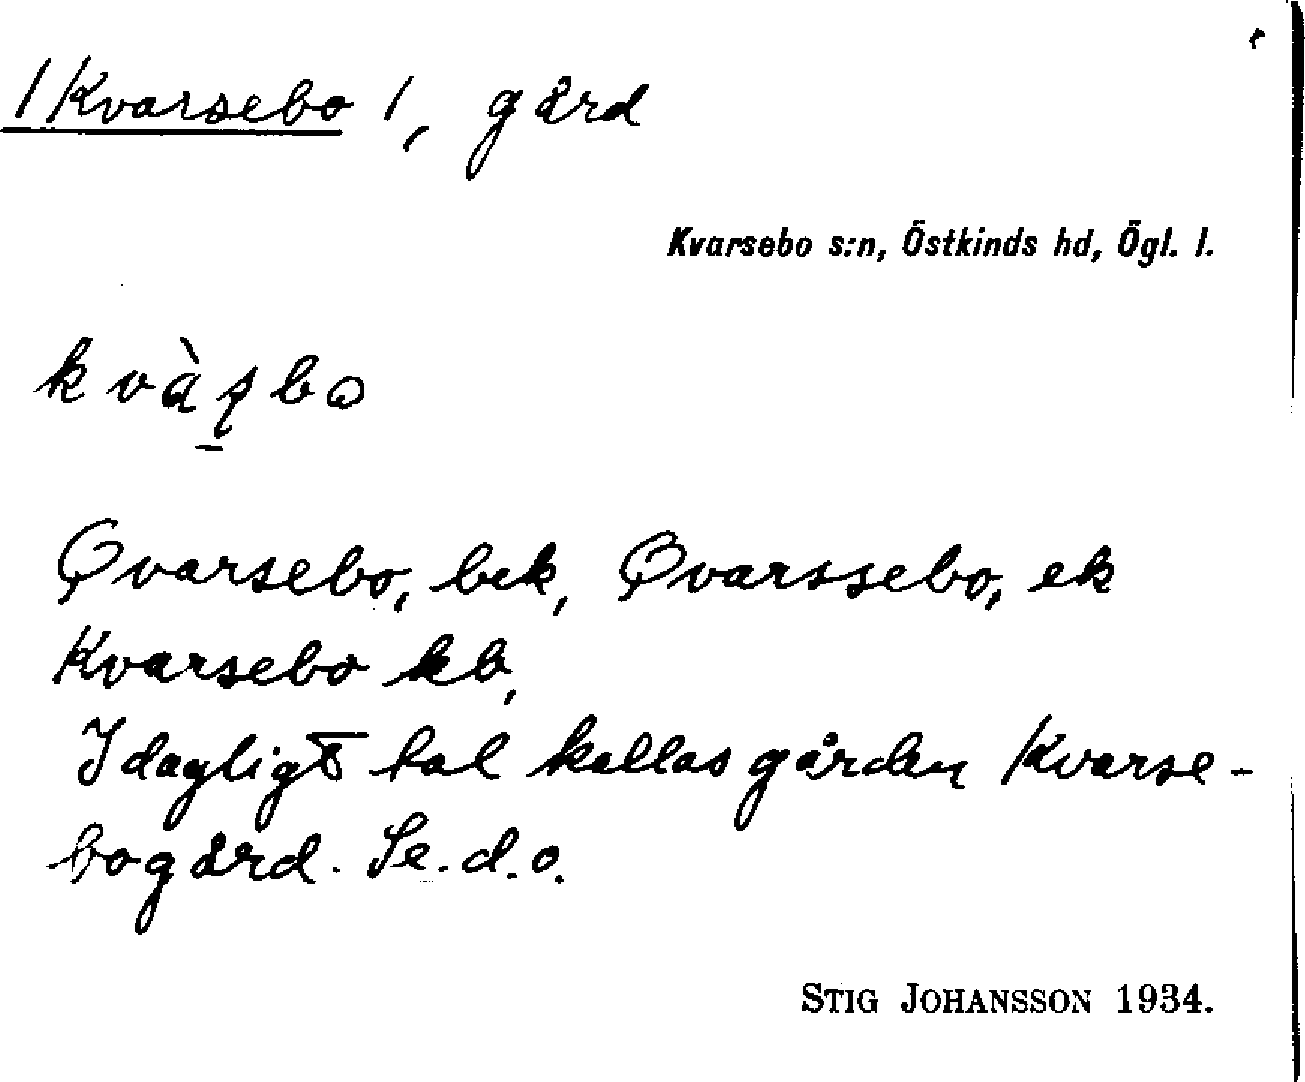 /Kvarsebo/, gård
Kvarsebo s:n, Östkinds hd, Ögl. l.
Qvarsebo, bek, Qvarssebo, ek
Kvarsebo kb,
I dagligt tal kallas gården Kvarse-
bogård. Se. d.o.
STIG JOHANSSON 1934.